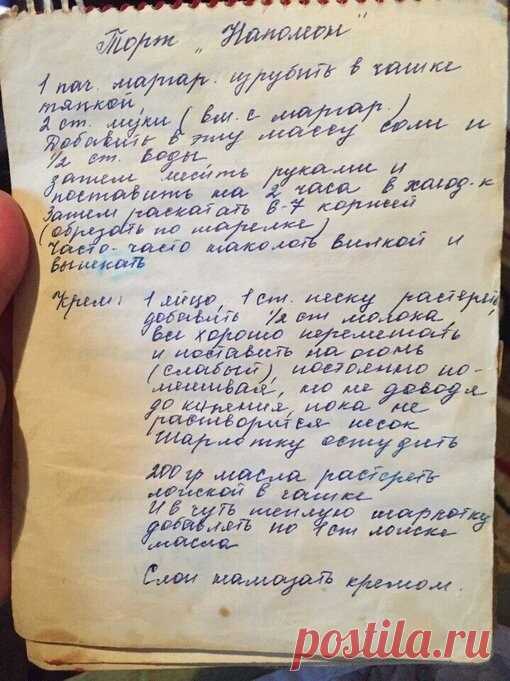 Торт „Наполеон"
1 пач. маргар. изрубить в чашке
тяпкой,
2 ст. муки (вм. с маргар.)
Добавить в эту массу соли и
1/2 ст. воды
Затем месить руками и
поставить на 2 часа в холод-к
Затем раскатать 6-7 коржей
(обрезать по тарелке)
Часто-часто наколоть вилкой и
выпекать
Крем: 1 яйцо, 1 ст. песку растереть,
добавить 1/2 ст молока,
все хорошо перемешать
и поставить на огонь
(слабый), постоянно по-
мешивая, но не доводя
до кипения, пока не
растворится песок
Шарлотку остудить
200 гр масла растереть
ложкой в чашке
И в чуть теплую шарлотку
добавлять по 1 ст ложке
масла
Слои намазать кремом.
https://postila.ru